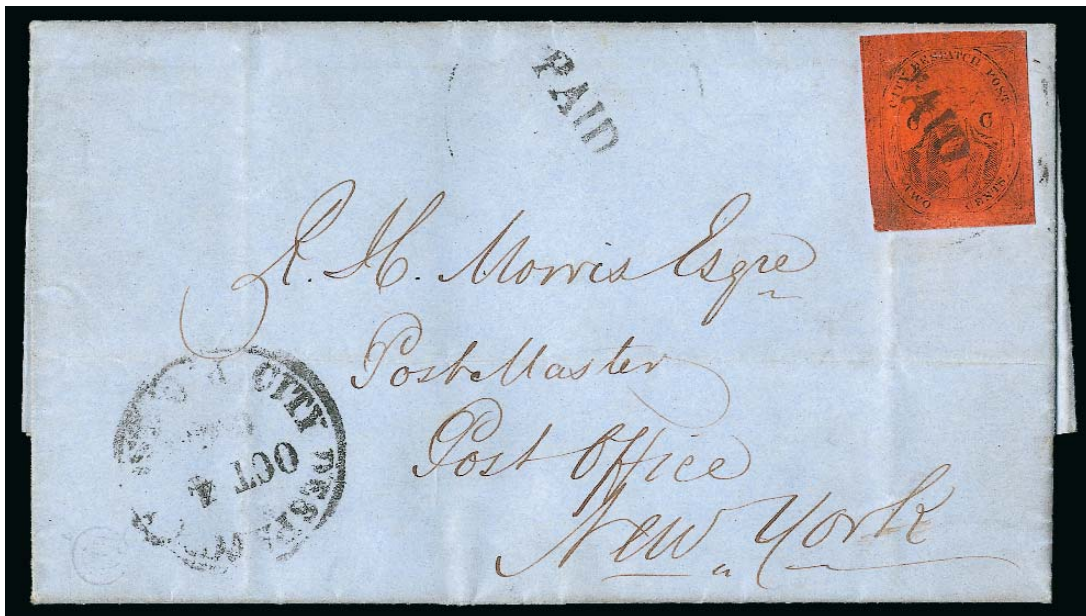 PAID
CITY DESPATCH POST
C C
PAID
TWO CENTS
R. H. Morris Esqre
Post Master
Post Office
New York
CITY DESPATCH
OCT 4